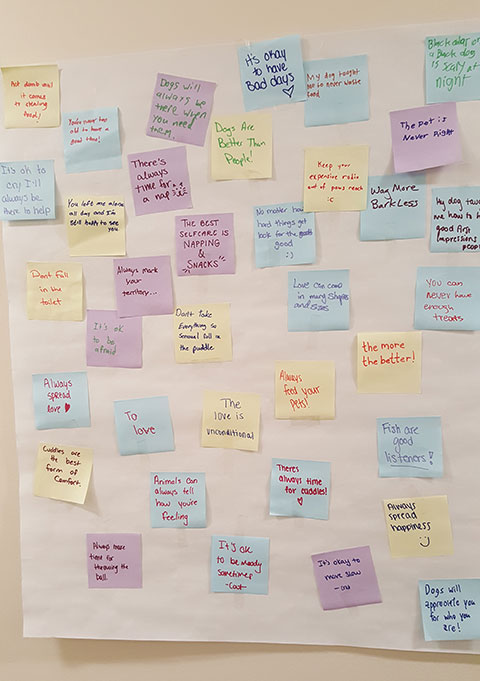 Not dumb until
it comes
to stealing
food!
You're never too
old to have a
good time!
Dogs will
always be
there when
you need
them.
It's okay
to have
Bad days
My dog taught
me to never waste
food
Black color on
a Black dog
is scary at
night
Dogs Are
Better Than
People!
The pet is
Never Right
It's ok to
cry I'll
always be
there to help
You left me alone
all day and I'm
still happy to see
you
There's
always
time for
a nap
Keep your
expensive radio
out of paws reach
:c
Way More
Bark Less
My dog
me how to
good first
impressions
people
THE BEST
SELFCARE IS
NAPPING
&
SNACKS
No matter how
hard things get
look for the
good
:)
Dont fall
in the
toilet
Always mark
your
territory...
Love can come
in many shapes
and sizes
You can
never have
enough
treats
It's ok
to be
afraid
Don't take
Everything so
serious
in the puddle
the more
the better!
Always
spread
love
To
love
The
love is
unconditional
Always
feed your
pets!
Fish are
good
listeners!
Cuddles are
the best
form of
comfort.
Animals can
always tell
how you're
feeling
Theres
always time
for cuddles!
Always
spread
happiness
Always make
time for
throwing the
ball.
It's ok
to be Moody
sometimes
-Coot
It's okay to
move slow
Dogs will
appreciate you
for who you
are!